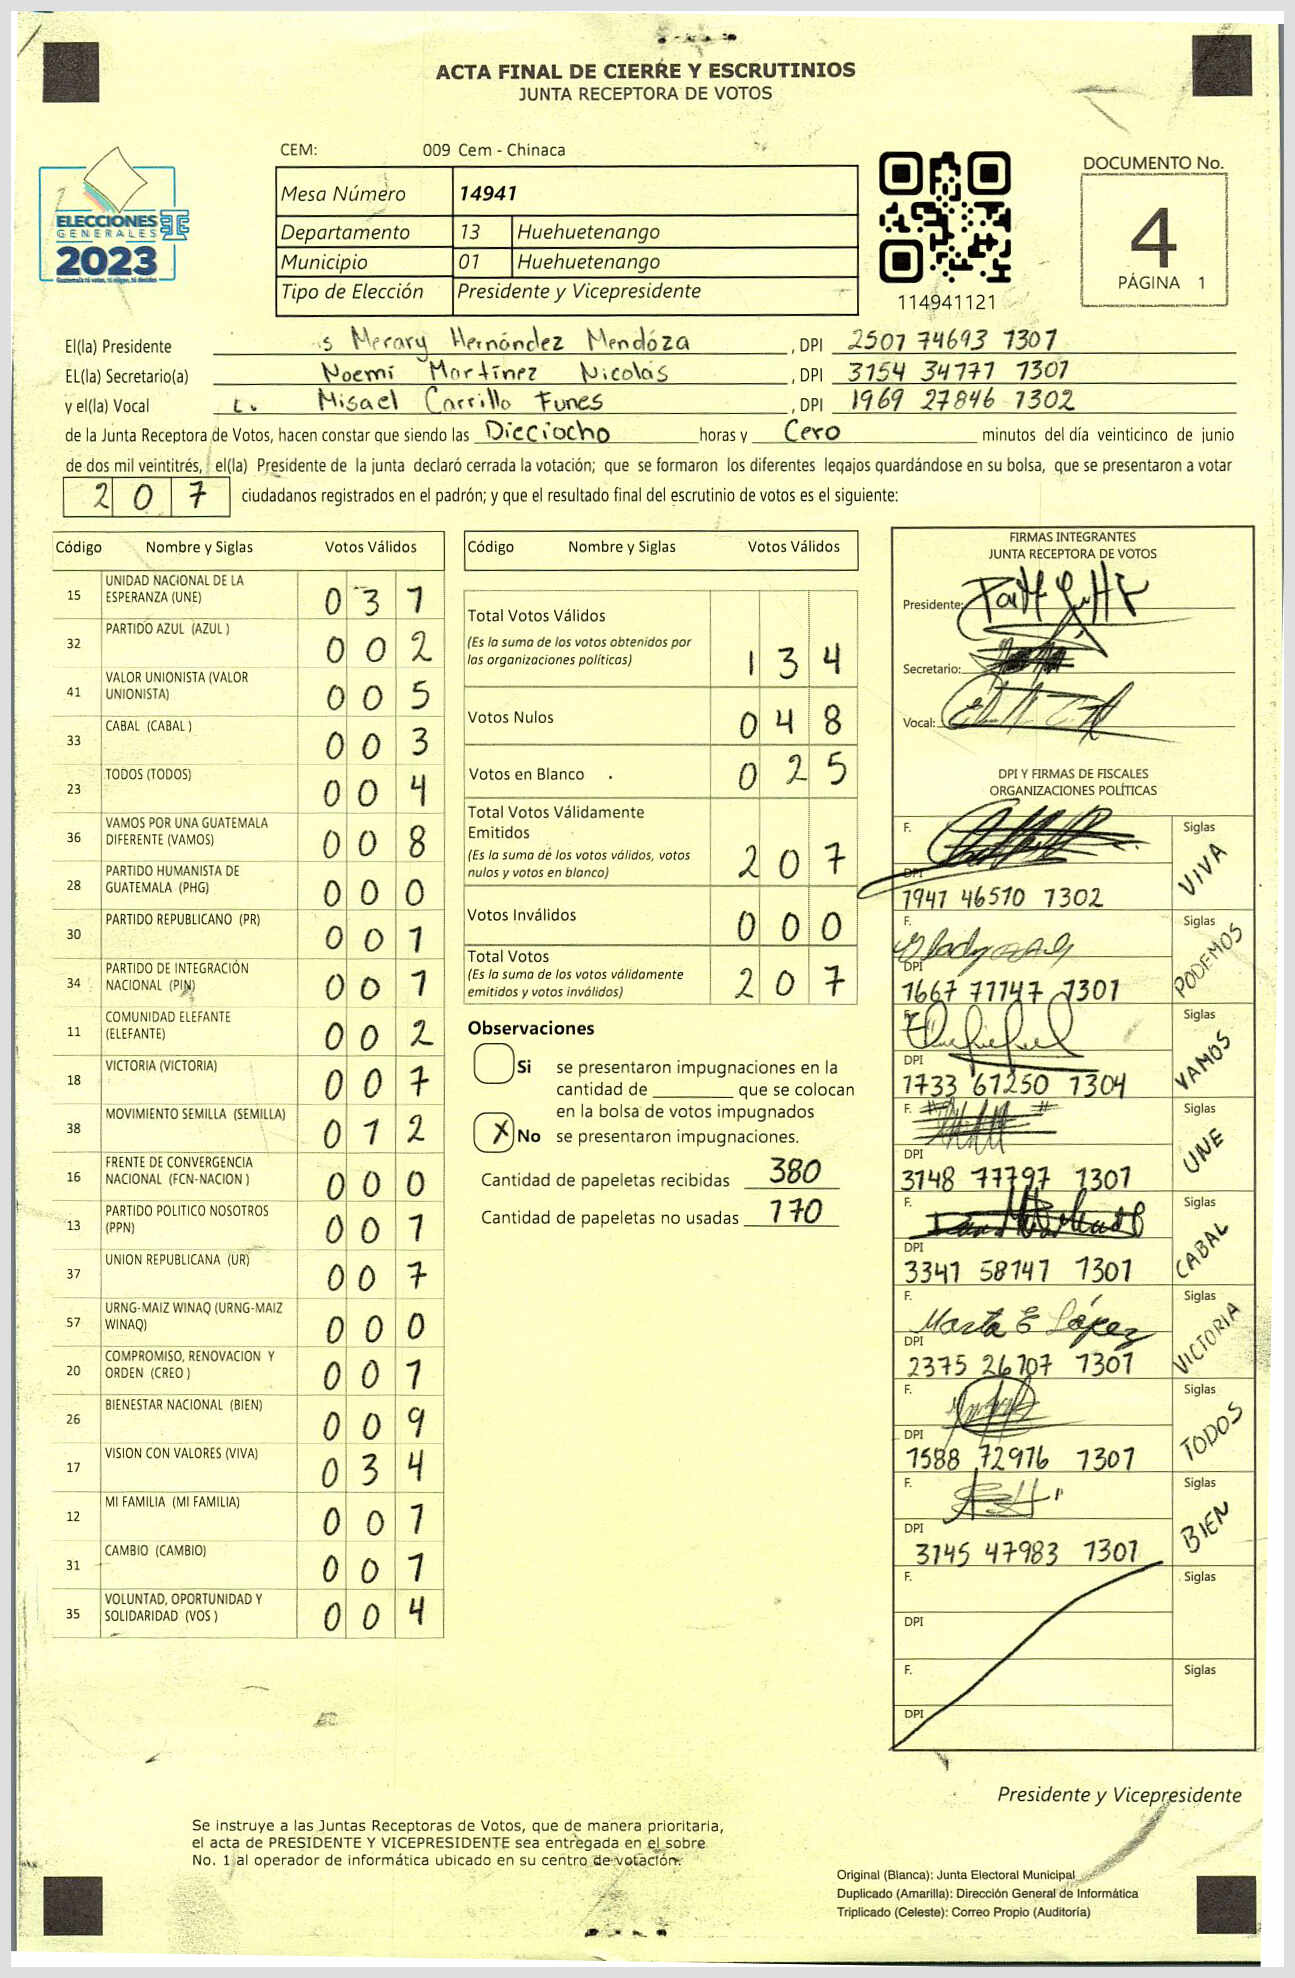 ACTA FINAL DE CIERRE Y ESCRUTINIOS
JUNTA RECEPTORA DE VOTOS
CEM: 009 Cem - Chinaca
ELECCIONES
GENERALES
2023
Guatemala tú votas, tú eliges, tú decides
Mesa Número 14941
Departamento 13 Huehuetenango
Municipio 01 Huehuetenango
Tipo de Elección Presidente y Vicepresidente
114941121
DOCUMENTO No.
4
PÁGINA 1
El(la) Presidente s Merary Hernández Mendóza , DPI 2501 74693 1301
EL(la) Secretario(a) Noemí Martínez Nicolás , DPI 3154 34171 1301
y el(la) Vocal L. Misael Carrillo Funes , DPI 1969 27846 1302
de la Junta Receptora de Votos, hacen constar que siendo las Dieciocho horas y Cero minutos del día veinticinco de junio
de dos mil veintitrés, el(la) Presidente de la junta declaró cerrada la votación; que se formaron los diferentes legajos quardándose en su bolsa, que se presentaron a votar
207 ciudadanos registrados en el padrón; y que el resultado final del escrutinio de votos es el siguiente:
Código Nombre y Siglas Votos Válidos
15 UNIDAD NACIONAL DE LA ESPERANZA (UNE) 031
32 PARTIDO AZUL (AZUL ) 002
41 VALOR UNIONISTA (VALOR UNIONISTA) 005
33 CABAL (CABAL ) 003
23 TODOS (TODOS) 004
36 VAMOS POR UNA GUATEMALA DIFERENTE (VAMOS) 008
28 PARTIDO HUMANISTA DE GUATEMALA (PHG) 000
30 PARTIDO REPUBLICANO (PR) 001
34 PARTIDO DE INTEGRACIÓN NACIONAL (PIN) 001
11 COMUNIDAD ELEFANTE (ELEFANTE) 002
18 VICTORIA (VICTORIA) 007
38 MOVIMIENTO SEMILLA (SEMILLA) 012
16 FRENTE DE CONVERGENCIA NACIONAL (FCN-NACION ) 000
13 PARTIDO POLITICO NOSOTROS (PPN) 001
37 UNION REPUBLICANA (UR) 007
57 URNG-MAIZ WINAQ (URNG-MAIZ WINAQ) 000
20 COMPROMISO, RENOVACION Y ORDEN (CREO ) 001
26 BIENESTAR NACIONAL (BIEN) 009
17 VISION CON VALORES (VIVA) 034
12 MI FAMILIA (MI FAMILIA) 001
31 CAMBIO (CAMBIO) 001
35 VOLUNTAD, OPORTUNIDAD Y SOLIDARIDAD (VOS ) 004
Código Nombre y Siglas Votos Válidos
Total Votos Válidos
(Es la suma de los votos obtenidos por
las organizaciones políticas) 134
Votos Nulos 048
Votos en Blanco 025
Total Votos Válidamente
Emitidos
(Es la suma de los votos válidos, votos
nulos y votos en blanco) 207
Votos Inválidos 000
Total Votos
(Es la suma de los votos válidamente
emitidos y votos inválidos) 207
Observaciones
Si se presentaron impugnaciones en la
cantidad de ________ que se colocan
en la bolsa de votos impugnados
X No se presentaron impugnaciones.
Cantidad de papeletas recibidas 380
Cantidad de papeletas no usadas 170
FIRMAS INTEGRANTES
JUNTA RECEPTORA DE VOTOS
Presidente:
Secretario:
Vocal:
DPI Y FIRMAS DE FISCALES
ORGANIZACIONES POLÍTICAS
F. Siglas VIVA
DPI 1941 46510 1302
F. Siglas PODEMOS
DPI 1667 71147 1301
F. Siglas VAMOS
DPI 1733 61250 1304
F. Siglas UNE
DPI 3148 77797 1301
F. Siglas CABAL
DPI 3341 58147 1301
F. Marta E López Siglas VICTORIA
DPI 2375 26107 1301
F. Siglas TODOS
DPI 1588 72976 1301
F. Siglas BIEN
DPI 3145 47983 1301
F. Siglas
DPI
F. Siglas
DPI
Presidente y Vicepresidente
Se instruye a las Juntas Receptoras de Votos, que de manera prioritaria,
el acta de PRESIDENTE Y VICEPRESIDENTE sea entregada en el sobre
No. 1 al operador de informática ubicado en su centro de votación.
Original (Blanca): Junta Electoral Municipal
Duplicado (Amarilla): Dirección General de Informática
Triplicado (Celeste): Correo Propio (Auditoría)